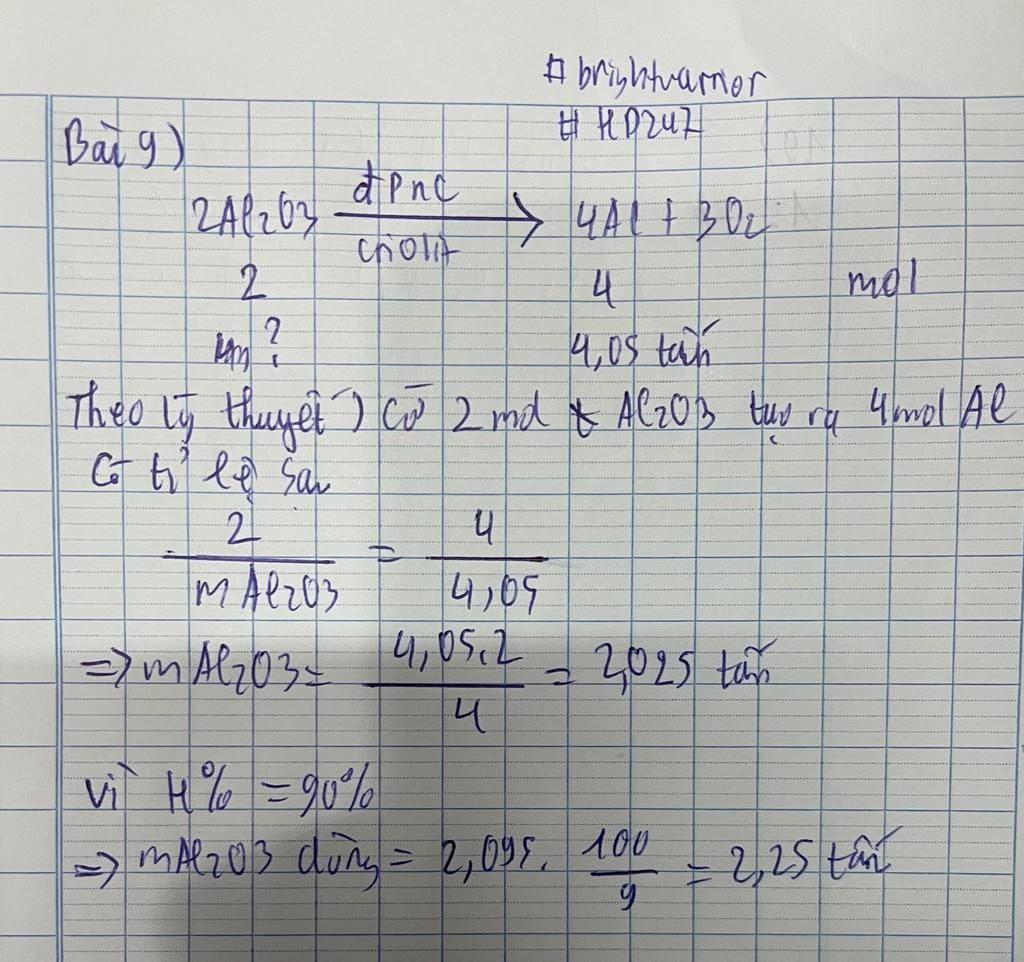 # brightwarrior
# HD247
Bài 9)
2Al2O3 đpnc criolit → 4Al + 3O2
2 4 mol
? 4,05 tấn
Theo lý thuyết) Có 2 mol Al2O3 tạo ra 4mol Al
Có tỉ lệ sau
2/mAl2O3 = 4/4,05
=> mAl2O3 = 4,05.2/4 = 2,025 tấn
Vì H% = 90%
=> mAl2O3 dùng = 2,025. 100/9 = 2,25 tấn